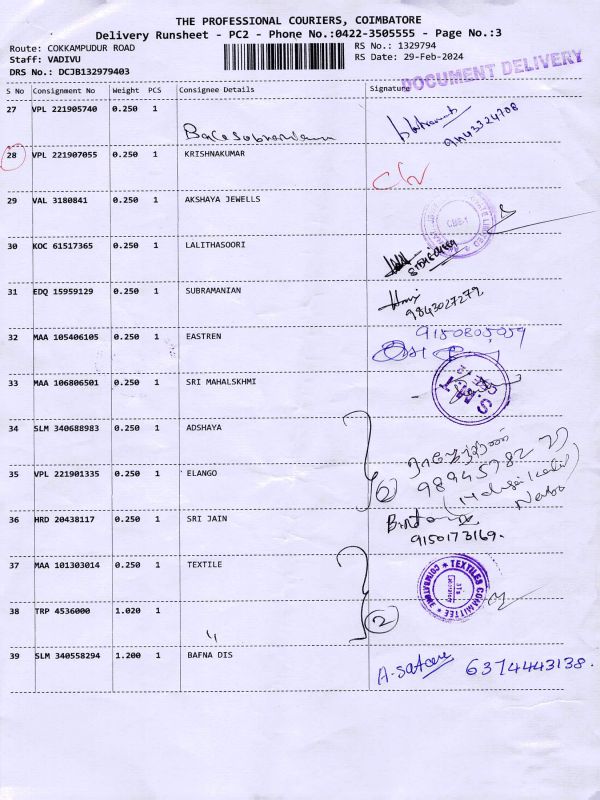 THE PROFESSIONAL COURIERS, COIMBATORE
Delivery Runsheet - PC2 - Phone No.:0422-3505555 - Page No.:3
Route: COKKAMPUDUR ROAD
RS No.: 1329794
Staff: VADIVU
RS Date: 29-Feb-2024
DRS No.: DCJB132979403
DOCUMENT DELIVERY
S No Consignment No Weight PCS Consignee Details Signature
27 VPL 221905740 0.250 1
28 VPL 221907055 0.250 1 KRISHNAKUMAR
29 VAL 3180841 0.250 1 AKSHAYA JEWELLS
CBE-1
30 KOC 61517365 0.250 1 LALITHASOORI
31 EDQ 15959129 0.250 1 SUBRAMANIAN
9843027279
32 MAA 105406105 0.250 1 EASTREN
9150805059
33 MAA 106806501 0.250 1 SRI MAHALSKHMI
34 SLM 340688983 0.250 1 ADSHAYA
35 VPL 221901335 0.250 1 ELANGO
36 HRD 20438117 0.250 1 SRI JAIN
9150173169.
37 MAA 101303014 0.250 1 TEXTILE
TEXTILES COMMITTEE * COIMBATORE *
38 TRP 4536000 1.020 1 〃
2
39 SLM 340558294 1.200 1 BAFNA DIS
6374443138.